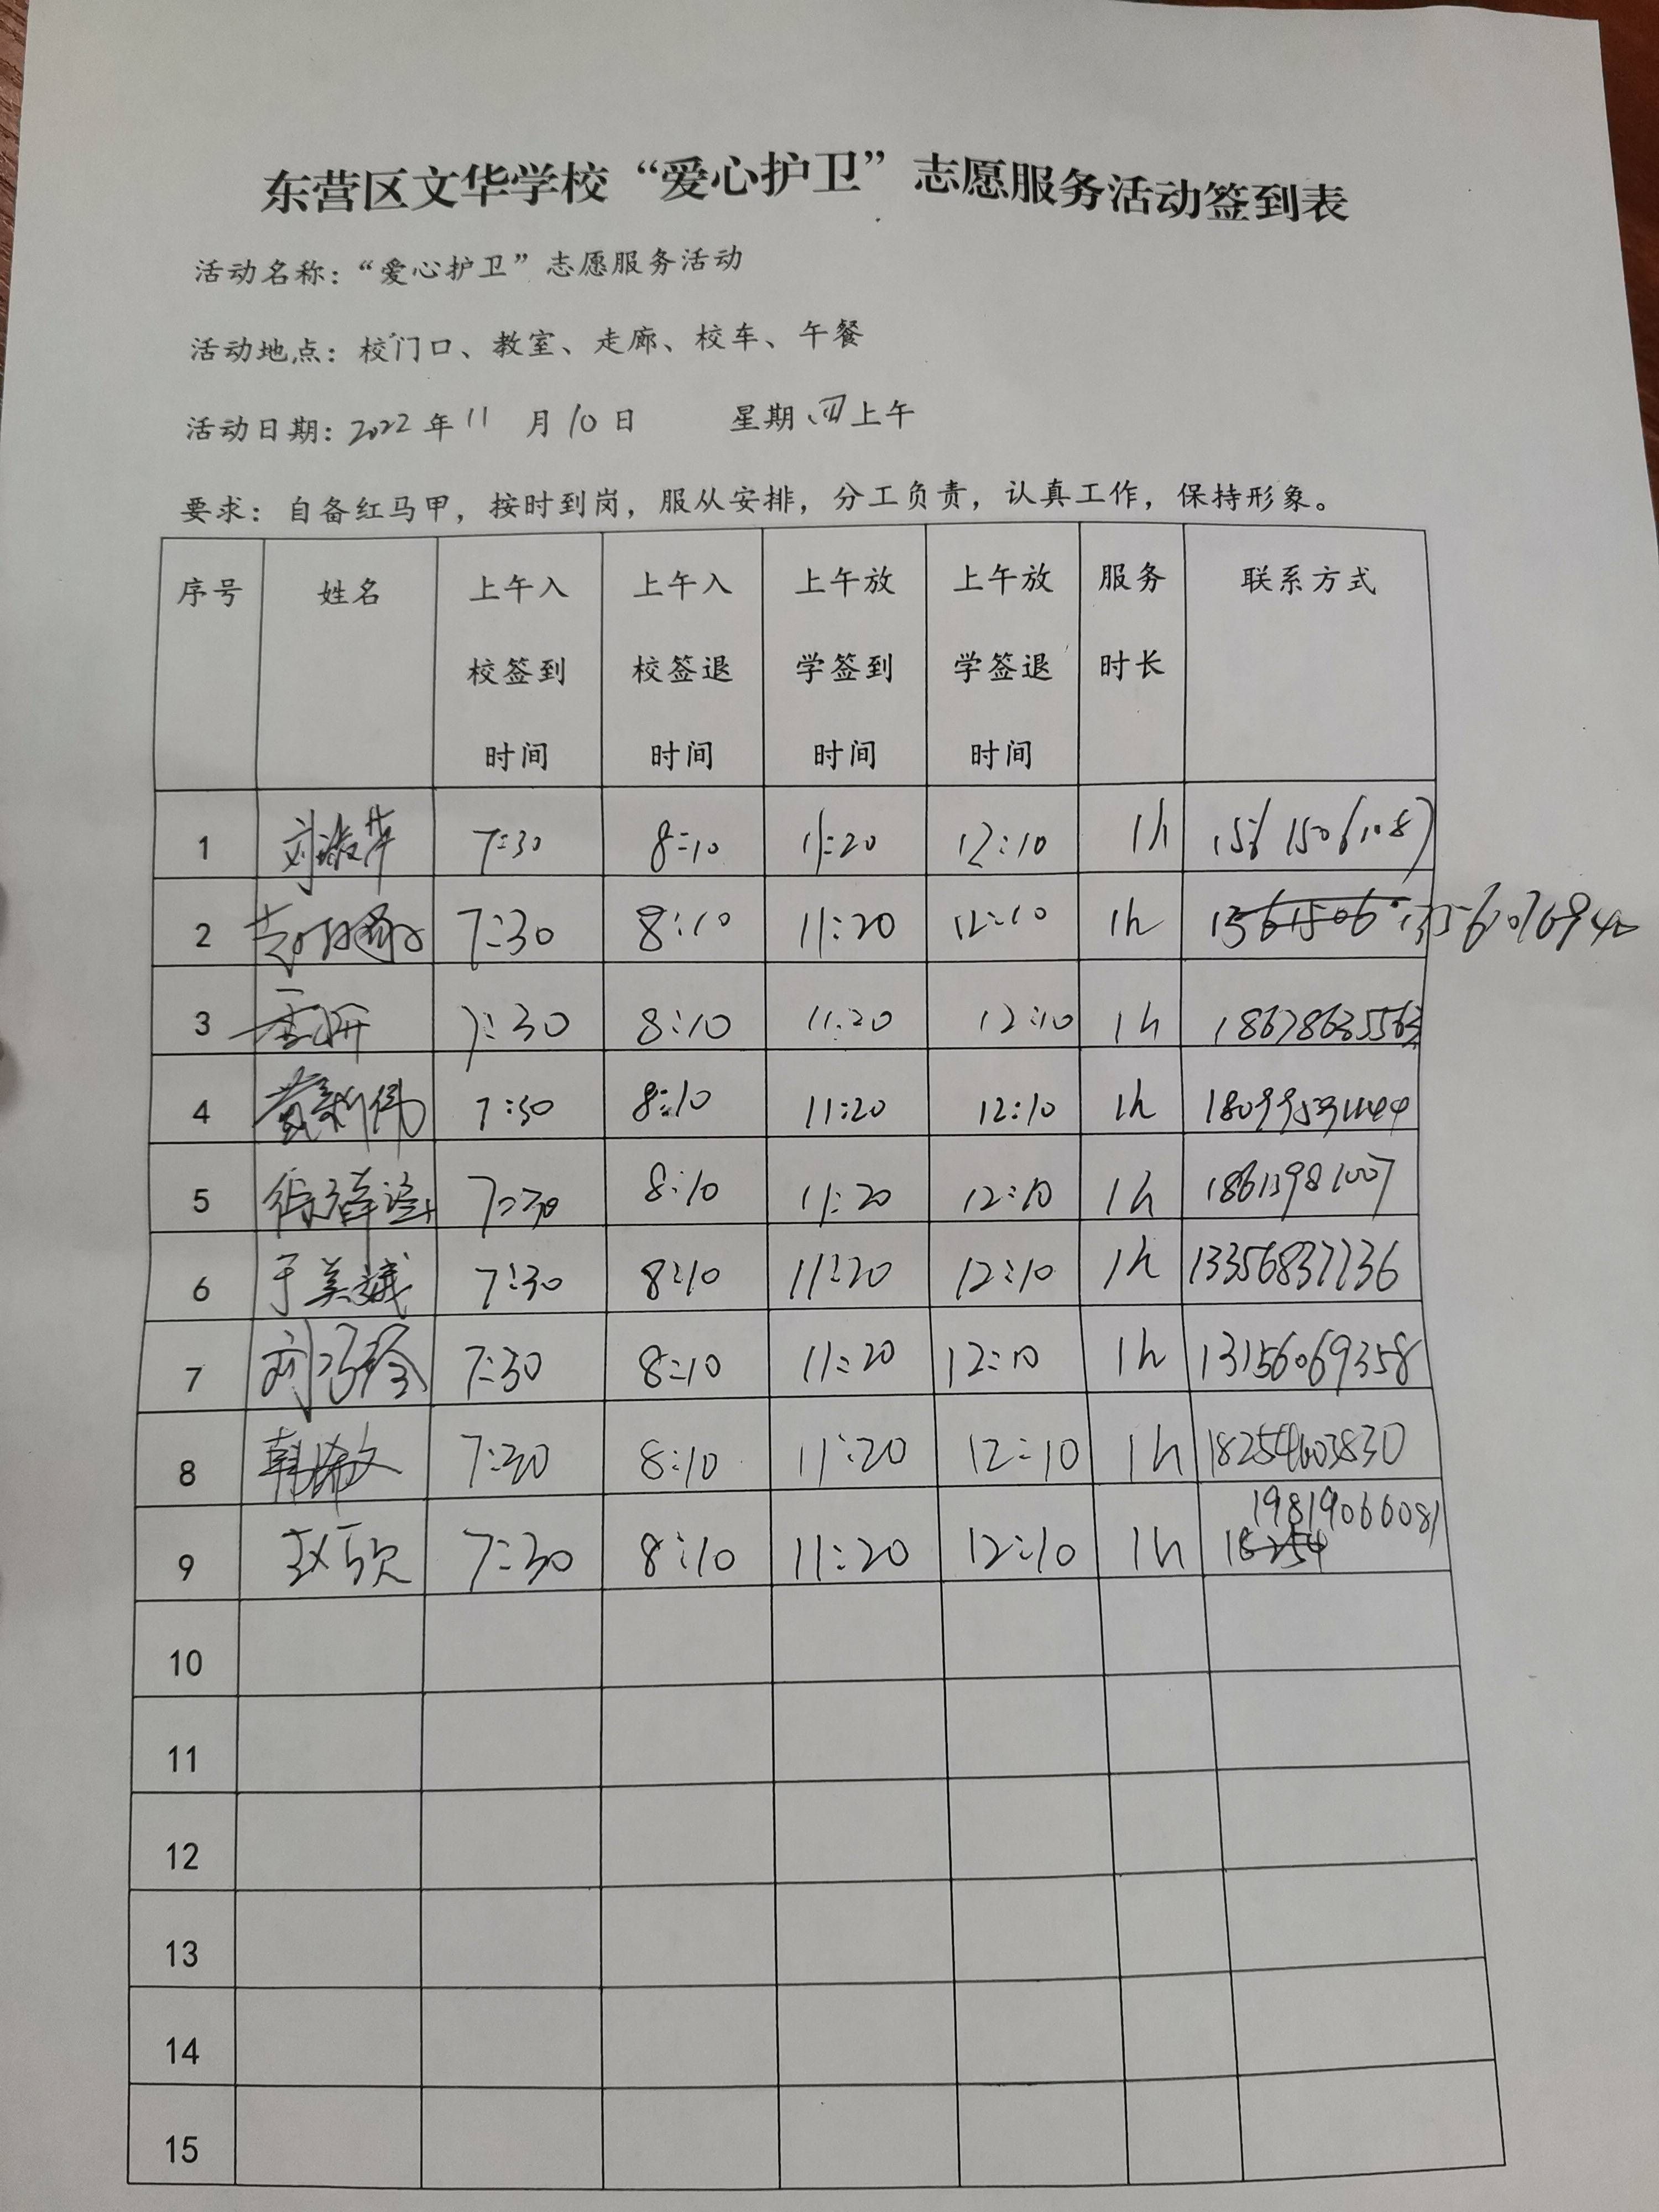 东营区文华学校“爱心护卫”志愿服务活动签到表
活动名称：“爱心护卫”志愿服务活动
活动地点：校门口、教室、走廊、校车、午餐
活动日期：2022年11月10日 星期四上午
要求：自备红马甲，按时到岗，服从安排，分工负责，认真工作，保持形象。
序号 姓名 上午入校签到时间 上午入校签退时间 上午放学签到时间 上午放学签退时间 服务时长 联系方式
1 7:30 8:10 11:20 12:10 1h
2 7:30 8:10 11:20 12:10 1h
3 7:30 8:10 11:20 12:10 1h 18678635563
4 7:30 8:10 11:20 12:10 1h
5 7:30 8:10 11:20 12:10 1h
6 于美 7:30 8:10 11:20 12:10 1h 13356837236
7 刘巧玲 7:30 8:10 11:20 12:10 1h 13156069358
8 韩 文 7:30 8:10 11:20 12:10 1h 18254603830
9 赵欣 7:30 8:10 11:20 12:10 1h 19819066081
10
11
12
13
14
15